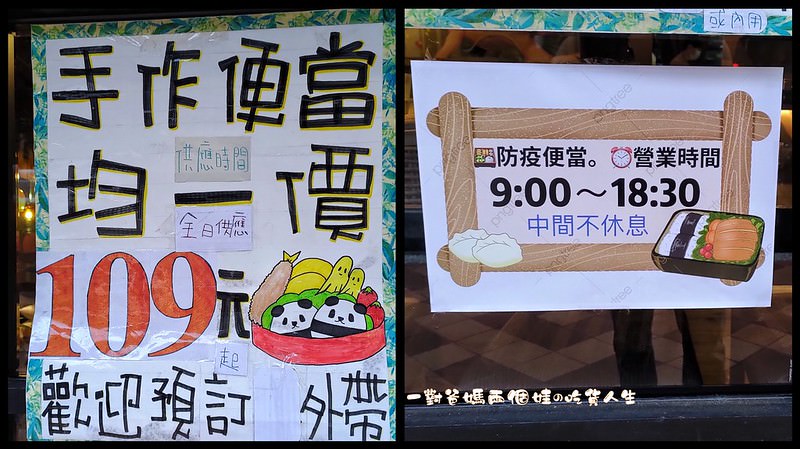 手作便當
供應時間
均一價
全日供應
109元
起
歡迎預訂 外帶
或內用
防疫便當。營業時間
9:00～18:30
中間不休息
pngtree
一對爸媽兩個娃の吃貨人生